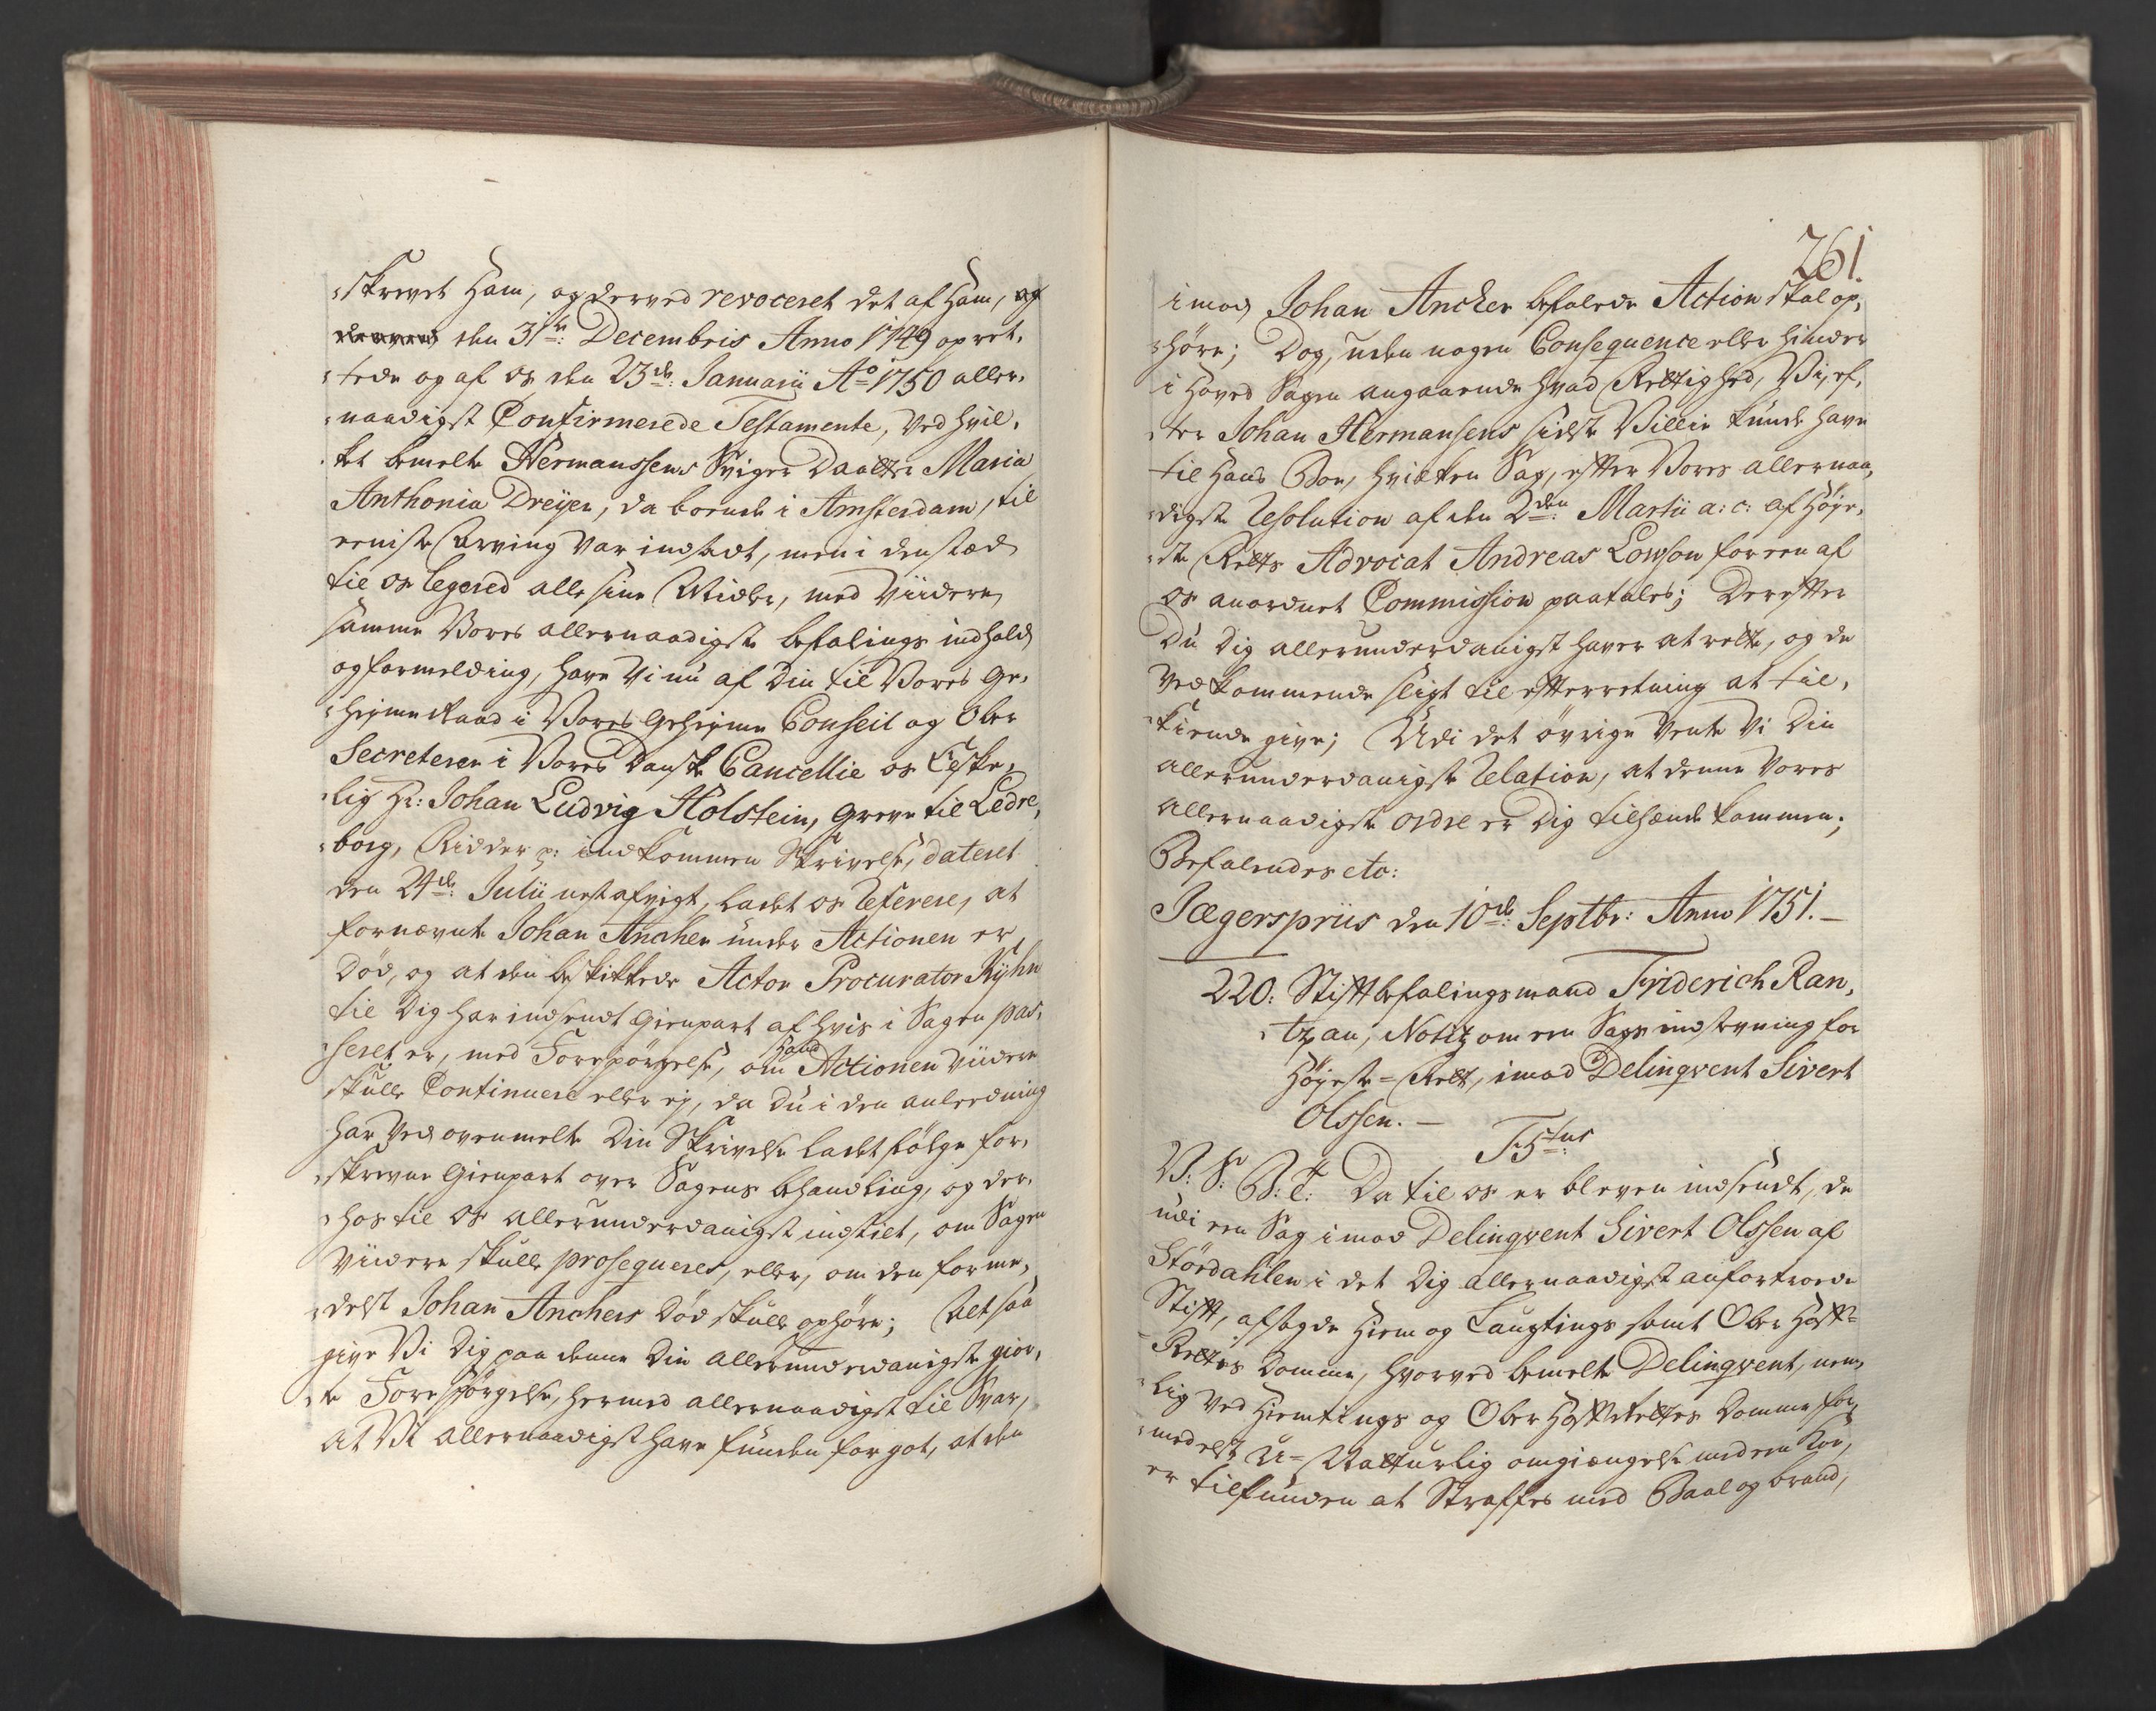 skrevet ham, og derved revoceret det af ham, og
derved den 31te: Decembris Anno 1749 opret-
tede og af os den 23de: Januarii Ao 1750 aller-
naadigst Confirmerede Testamente, ved hvil-
ket bemelte Hermanssens Sviger Daatter Maria
Anthonia Dreÿer, da boende i Amsterdam, til
eeniste Arving var indsadt, men i den stæd
til os legered alle sine Midler, med viidere
samme Vores allernaadigste befalings indhold
og formelding, have Vi nu af Din til Vores Ge-
heyme Raad i Vores Geheyme Conseil og Ober
Secreterer i Vores Danske Cancellie os Elske-
lig Hr: Johan Ludvig Holstein, Greve til Ledre-
borg, Ridder p: indkommen Skrivelse, dateret
den 24de: Julii nestafvigt, ladet os referere, at
fornævnte Johan Ancher under Actionen er
død, og at den beskikkede Actor Procurator Kÿhn
til Dig har indsendt Gienpart af hvis i Sagen pas-
seret er, med Forespørgelse, om hand Actionen viidere
skulle Continuere eller ej, da Du i den anleedning
har ved ovenmelte Din Skrivelse ladet følge for-
skrevne Gienpart over Sagens behandling, og der-
hos til os allerunderdanigst indstilt, om Sagen
viidere skulle prosequeres, eller, om den forme-
delst Johan Anchers Død skulle ophøre; Altsaa
give Vi Dig paa denne Din allerunderdanigste gior-
te Forespørgelse, hermed allernaadigst til Svar,
at Vi allernaadigst have funden for got, at den
261.
imod Johan Ancher befalede Action skal op-
høre; Dog, uden nogen Consequence eller hinder
i Hoved Sagen angaaende hvad Rettighed, Vi, ef-
ter Johan Hermansens sidste Villie kunde have
til hans Boe, hvilken Sag, efter Vores allernaa-
digste Resolution af den 2den: Martii a: c: af Høye-
ste Retts Advocat Andreas Lowson for een af
os anordnet Commission paatales; Derefter
Du Dig allerunderdanigst haver at rette, og de
Vedkommende sligt til efterretning at til-
kiende give; Udi det øvrige vente Vi Din
allerunderdanigste Relation, at denne Vores
allernaadigste Ordre er Dig tilhænde kommen;
Befalendes etc:
Jægerspriis den 10de: Septbr: Anno 1751.—
220: Stiftbefalingsmand Friderich Ran-
tzau, Notitz om een Sags indstevning for
Høyeste-Rett, imod Delinqvent Sivert
Olssen.—
F5tus
V: S: G: T: Da til os er bleven indsendt, de
udi een Sag imod Delinqvent Sivert Olssen af
Størdahlen i det Dig allernaadigst anfortroede
Stift, afsagde Hiem og Laugtings samt Ober Hoff-
Rettes Domme, hvorved bemelte Delinqvent, nem-
lig ved Hiemtings og Ober Hoff Rettes Domme for-
medelst U-Natturlig omgiængelse med een Koe,
er tilfunden at Straffes med Baal og brand,